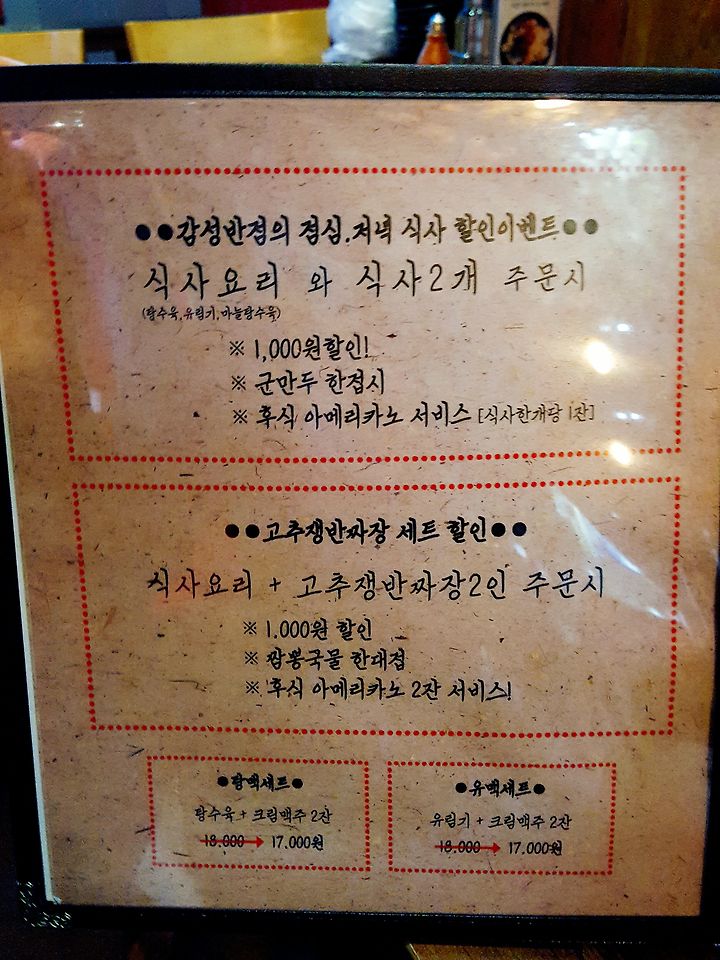 ●●감성반점의 점심.저녁 식사 할인이벤트●●
식사요리 와 식사2개 주문시
(탕수육,유림기,마늘탕수육)
※ 1,000원할인!
※ 군만두 한접시
※ 후식 아메리카노 서비스 [식사한개당 1잔]
●●고추쟁반짜장 세트 할인●●
식사요리 + 고추쟁반짜장2인 주문시
※ 1.000원 할인
※ 짬뽕국물 한대접
※ 후식 아메리카노 2잔 서비스!
●탕맥세트●
탕수육 + 크림맥주 2잔
18.000 → 17.000원
●유맥세트●
유림기 + 크림맥주 2잔
18.000 → 17.000원